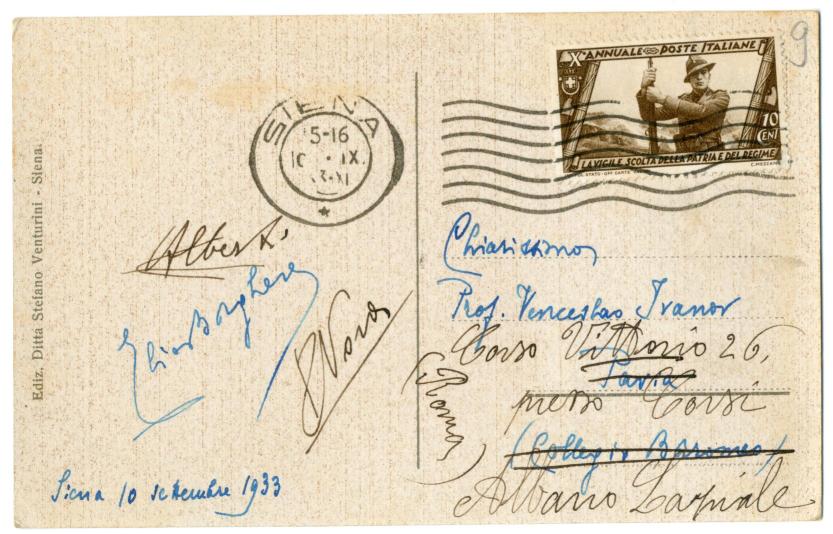 9
Xº ANNUALE POSTE ITALIANE
10
CENT
LA VIGILE SCOLTA DELLA PATRIA E DEL REGIME
SIENA
15-16
10 . IX
33-XI
Ediz. Ditta Stefano Venturini - Siena.
Elio Borghese
Siena 10 settembre 1933
Chiarissimo
Prof. Venceslao Ivanov
Corso Vittorio 26,
Pavia
presso Corsi
(Roma)
(Collegio Borromeo)
Albano Laziale